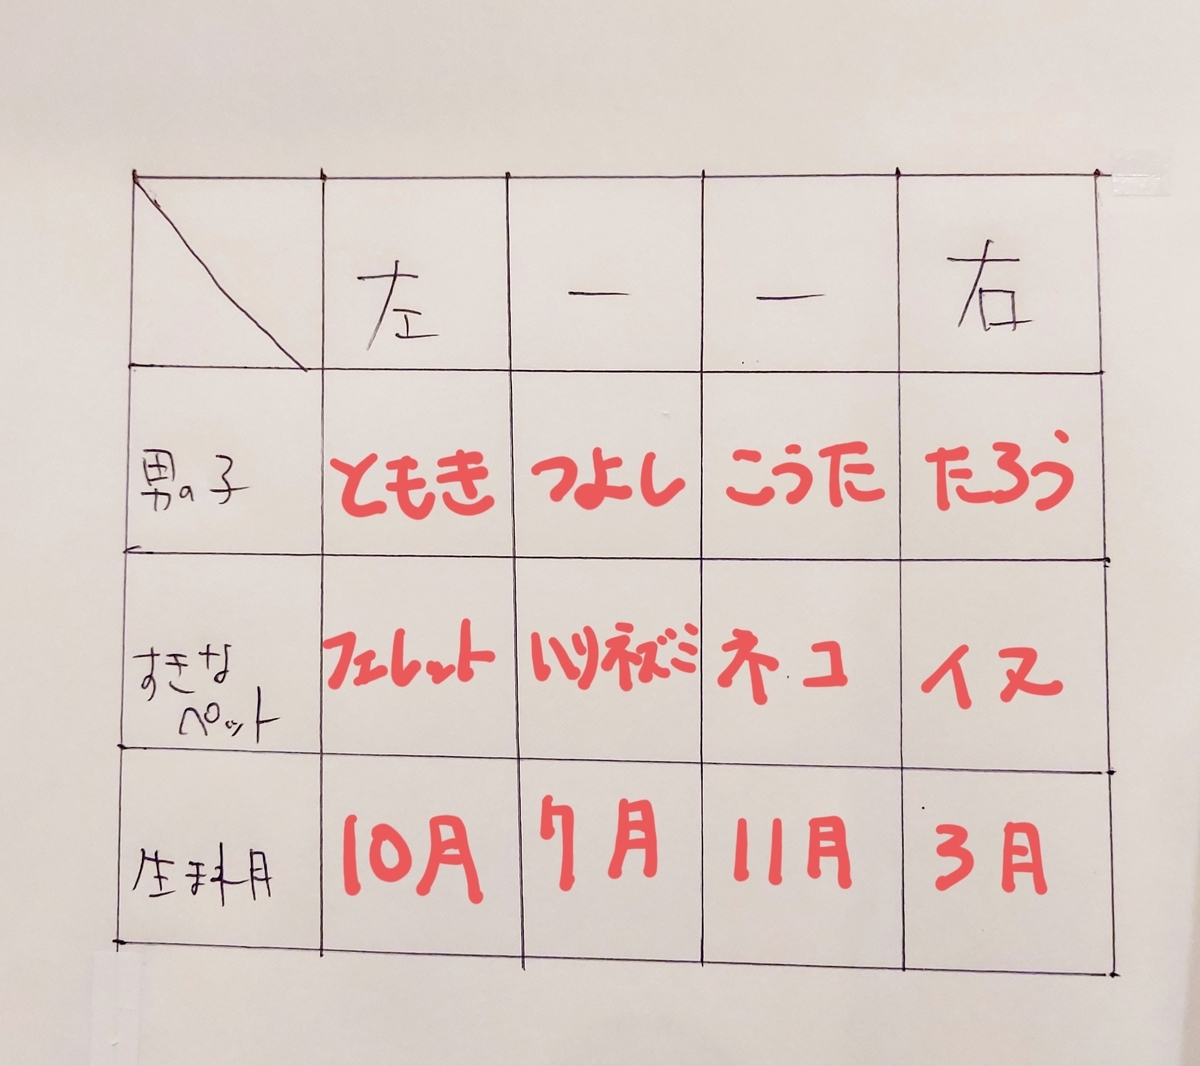 左 ー ー 右
男の子 ともき つよし こうた たろう
すきな
ペット フェレット ハリネズミ ネコ イヌ
生まれ月 10月 7月 11月 3月